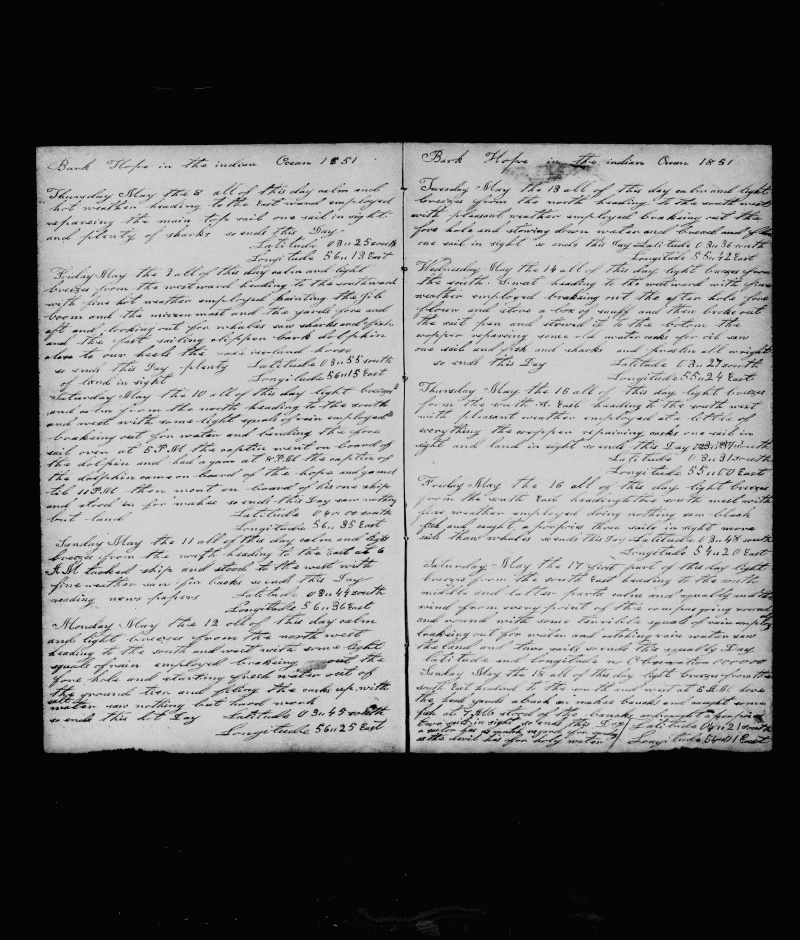 Bark Hope in the indian Ocean 1851
Thursday May the 8 all of this day calm and
hot weather heading to the East ward employed
repareing the main top sail one sail in sight
and plenty of sharks so ends this Day
Latitude 03"25 south
Longitude 56"13 East
Friday May the 9 all of this day calm and light
breezes from the westward heading to the southward
with fine hot weather employed painting the jib
boom and the mizzen mast and the yards fore and
aft and looking out for whales saw sharks and fish
and the fast sailing clipper bark dolphin
close to our heels the
so ends this Day plenty Latitude 03"55 south
of land in sight Longitude 56"15 East
Saturday May the 10 all of this day light breezes
and calm from the north heading to the south
and west with some light squals of rain employed
brakeing out for water and bending the fore
sail over at 5 PM the captin went on board of
the dolpin and had a gam at 8 PM the captin of
the dolphin came on board of the hope and gamed
til 11 PM then went on board of his one ship
and stood in for mahee so ends this Day saw nothing
but land Latitude 04"00 south
Longitude 56"35 East
Sunday May the 11 all of this day calm and light
breezes from the north heading to the East at 6
A M tacked ship and stood to the west with
fine weather saw fin backs so ends this Day
reading news papers Latitude 03"44 south
Longitude 56"36 East
Monday May the 12 all of this day calm
and light breezes from the north west
heading to the south and west with some light
squals of rain employed brakeing out the
fore hole and starting fresh water out of
the ground teer and filing the casks up with
salt water saw nothing but hard work
so ends this hot Day Latitude 03"45 south
Longitude 56"25 East
Bark Hope in the indian Ocean 1851
Tuesday May the 13 all of this day calm and light
breezes from the north heading to the south west
with pleasant weather employed brakeing out the
fore hole and stowing down water and bread and
one sail in sight so ends this Day Latitude 03"36 south
Longitude 55"42 East
Wednesday May the 14 all of this day light breezes from
the south East heading to the westward with fine
weather employed brakeing out the after hole for
flour and stove a box of snuff and then broke out
the salt pen and stowed it to the botom the
cooper repareing some old water casks for oil saw
one sail and fish and sharks and all wright
so ends this Day Latitude 03"27 south
Longitude 55"24 East
Thursday May the 15 all of this day light breezes
form the south East heading to the south west
with pleasant weather employed at a little of
everything the cooper repairing casks one sail in
sight and land in sight so ends this Day
Latitude 03"31 south
Longitude 55"00 East
Friday May the 16 all of this day light breezes
from the south East heading to the south west with
fine weather employed doing nothing saw black
fish and caught a porpoise three sails in sight more
sails than whales so ends this Day Latitude 03"48 south
Longitude 54"20 East
Saturday May the 17 first part of this day light
breezes from the south East heading to the south
middle and latter parts calm and squally and the
wind from every point of the compas going round
and round with some terrible squals of rain employ
looking out for water and catching rain water saw
the land and two sails so ends this squally Day
latitude and longitude no Observation 000000
Sunday May the 18 all of this day light breezes from the
south East headind to the south and west at 6 A M hove
the head yards aback on mahee bancks and caught some
fish at 7 AM stood of the bancks and caught a porpoise
two sails in sight so ends this Day Latitude 04"21 south
a sailor has as much regard for
as the devil has for holy water Longitude 54"01 East